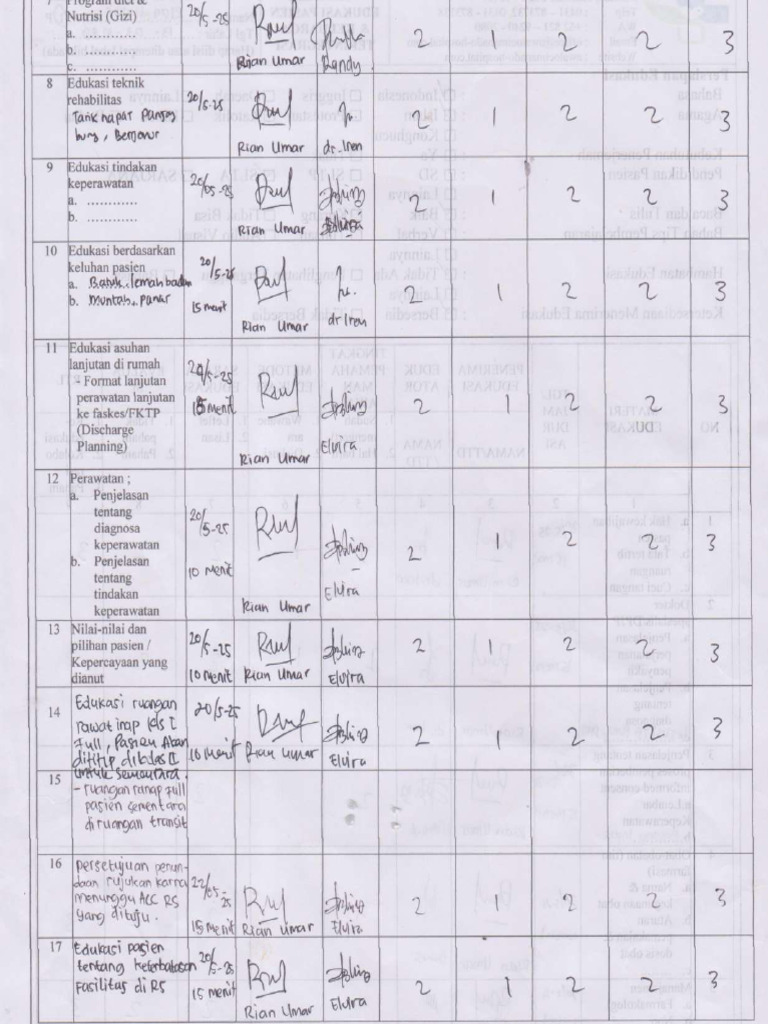 7 Program diet &
Nutrisi (Gizi)
a. ............
b. ............
c. ............
20/5-25
Rian Umar
Randy
2 1 2 2 3
8 Edukasi teknik
rehabilitas
Tarik napas Panjang
bung, Berjamur
20/5-25
Rian Umar
dr. Iren
2 1 2 2 3
9 Edukasi tindakan
keperawatan
a. ............
b. ............
20/05-25
Rian Umar
Elvira
2 1 2 2 3
10 Edukasi berdasarkan
keluhan pasien
a. Batuk, lemah badan
b. Muntah, panas
20/5-25
15 menit
Rian Umar
dr Iren
2 1 2 2 3
11 Edukasi asuhan
lanjutan di rumah
- Format lanjutan
perawatan lanjutan
ke faskes/FKTP
(Discharge
Planning)
20/5-25
15 menit
Rian Umar
Elvira
2 1 2 2 3
12 Perawatan ;
a. Penjelasan
tentang
diagnosa
keperawatan
b. Penjelasan
tentang
tindakan
keperawatan
20/5-25
10 menit
Rian Umar
Elvira
2 1 2 2 3
13 Nilai-nilai dan
pilihan pasien /
Kepercayaan yang
dianut
20/5-25
10 menit
Rian Umar
Elvira
2 1 2 2 3
14 Edukasi ruangan
rawat inap kls I
Full, Pasien Akan
dititip dikelas II
untuk sementara.
20/5-25
10 menit
Rian Umar
Elvira
2 1 2 2 3
15 - ruangan ranap full
pasien sementara
di ruangan transit
16 Persetujuan penun-
daan rujukan karna
menunggu ACC RS
yang dituju.
22/05-25
15 menit
Rian Umar
Elvira
2 1 2 2 3
17 Edukasi pasien
tentang keterbatasan
Fasilitas di RS
20/5-25
15 menit
Rian Umar
Elvira
2 1 2 2 3